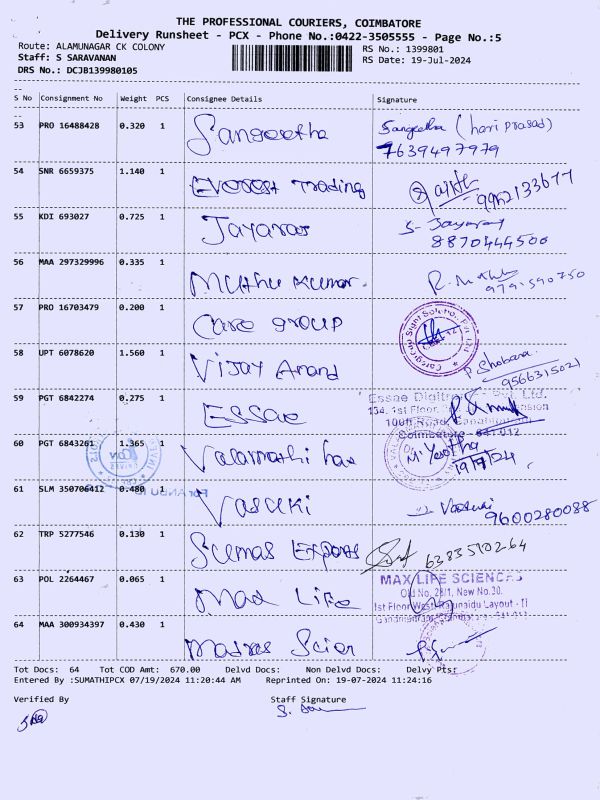 THE PROFESSIONAL COURIERS, COIMBATORE
Delivery Runsheet - PCX - Phone No.:0422-3505555 - Page No.:5
Route: ALAMUNAGAR CK COLONY
RS No.: 1399801
Staff: S SARAVANAN
RS Date: 19-Jul-2024
DRS No.: DCJB139980105
S No Consignment No Weight PCS Consignee Details Signature
53 PRO 16488428 0.320 1 Sangeetha Sangeetha (hari prasad)
7639497979
54 SNR 6659375 1.140 1 Everest Trading
9942133677
55 KDI 693027 0.725 1 Jayaram S- Jayaram
8870444500
56 MAA 297329996 0.335 1 Muthu Kumar.
57 PRO 16703479 0.200 1 Care Group
58 UPT 6078620 1.560 1 Vijay Anand P. Shobana
9566315021
59 PGT 6842274 0.275 1 Essae
Essae Digitronics Pvt. Ltd.
134, 1st Floor,
100ft Road, Gandhipuram
Coimbatore - 641 012
60 PGT 6843261 1.365 1 Valarmathi
19/7/24
61 SLM 350706412 0.480 1 Vasuki Vasuki
9600280088
62 TRP 5277546 0.130 1 Sumas Exports
6383510264
63 POL 2264467 0.065 1 Max Life
MAX LIFE SCIENCES
Old No. 28/1, New No.30.
1st Floor West Rajunaidu Layout - II
64 MAA 300934397 0.430 1 Madras Scien
Tot Docs: 64 Tot COD Amt: 670.00 Delvd Docs: Non Delvd Docs: Delvy Pts:
Entered By :SUMATHIPCX 07/19/2024 11:20:44 AM Reprinted On: 19-07-2024 11:24:16
Verified By Staff Signature